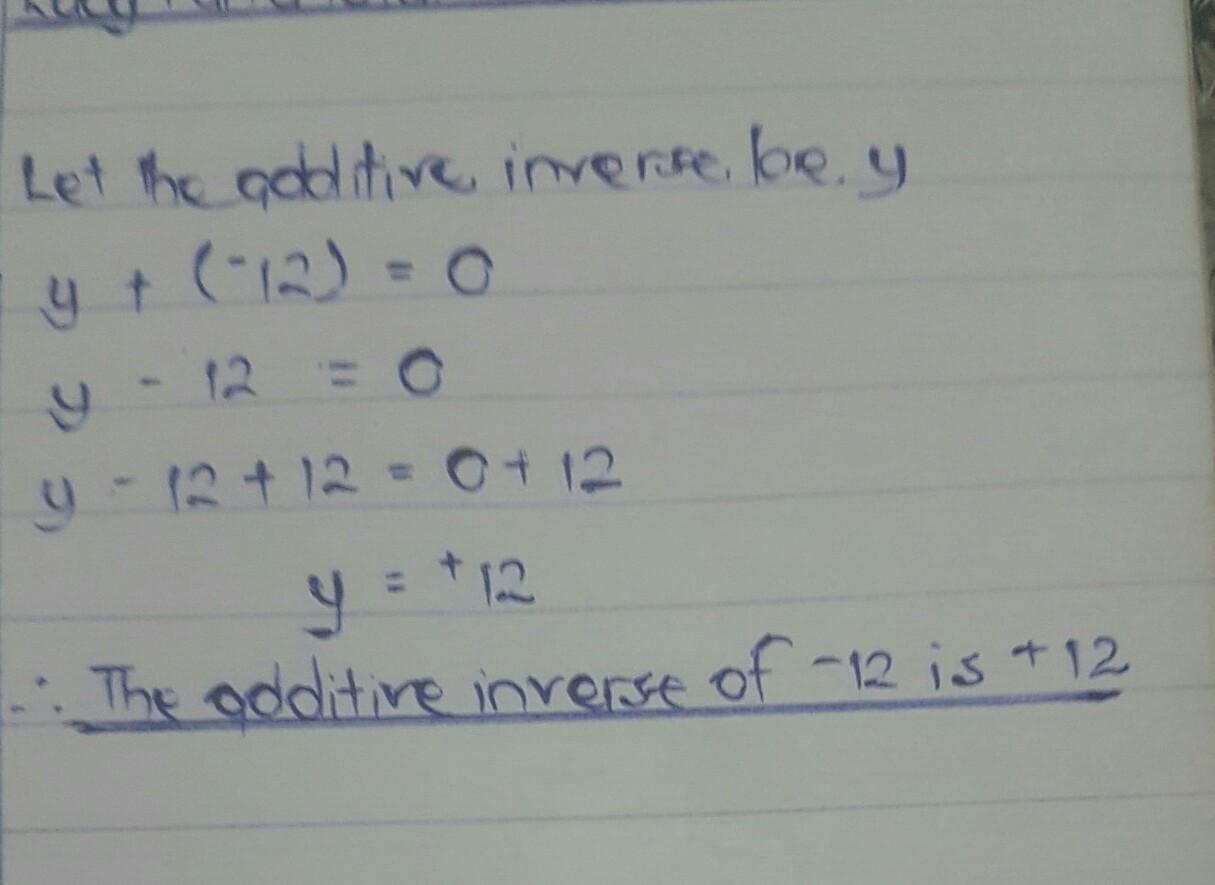 Let the additive inverse be y
y + (-12) = 0
y - 12 = 0
y - 12 + 12 = 0 + 12
y = +12
∴ The additive inverse of -12 is +12